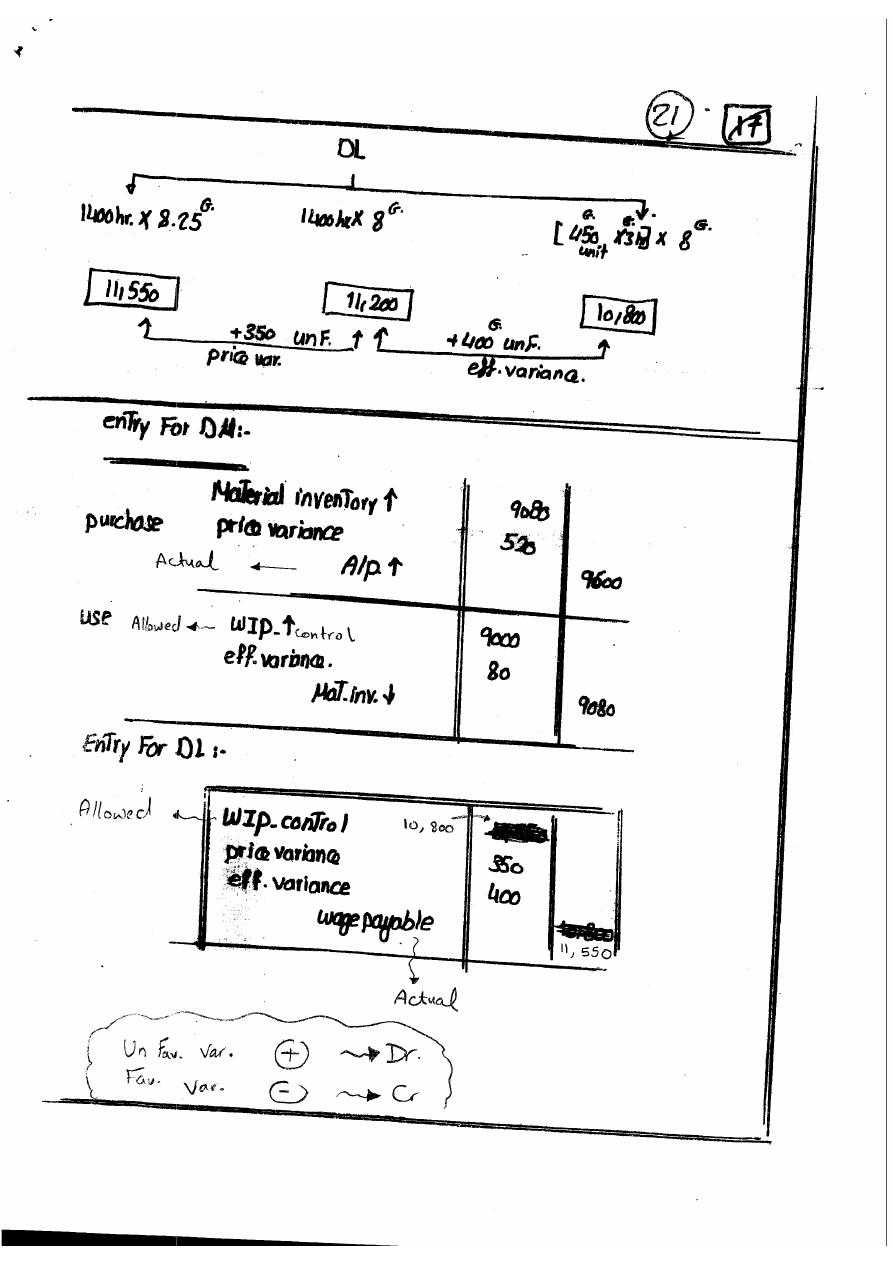 21 17
DL
G. G. G. G. G.
1400hr. X 8.25 1400hr X 8 [450 X3h] X 8
unit
11,550 11,200 10,800
G.
+350 unF. +400 unF.
price var. eff. variance.
entry For DM:-
Material inventory ↑ 9080
purchase price variance 520
Actual ← A/p. ↑ 9600
use Allowed ← WIP-↑control 9000
eff. variance. 80
Mat. inv. ↓ 9080
Entry For DL:-
Allowed ← WIP-control 10,800 →
price variance 350
eff. variance 400
wage payable
11,550
Actual
Un Fav. Var. + → Dr.
Fav. Var. - → Cr